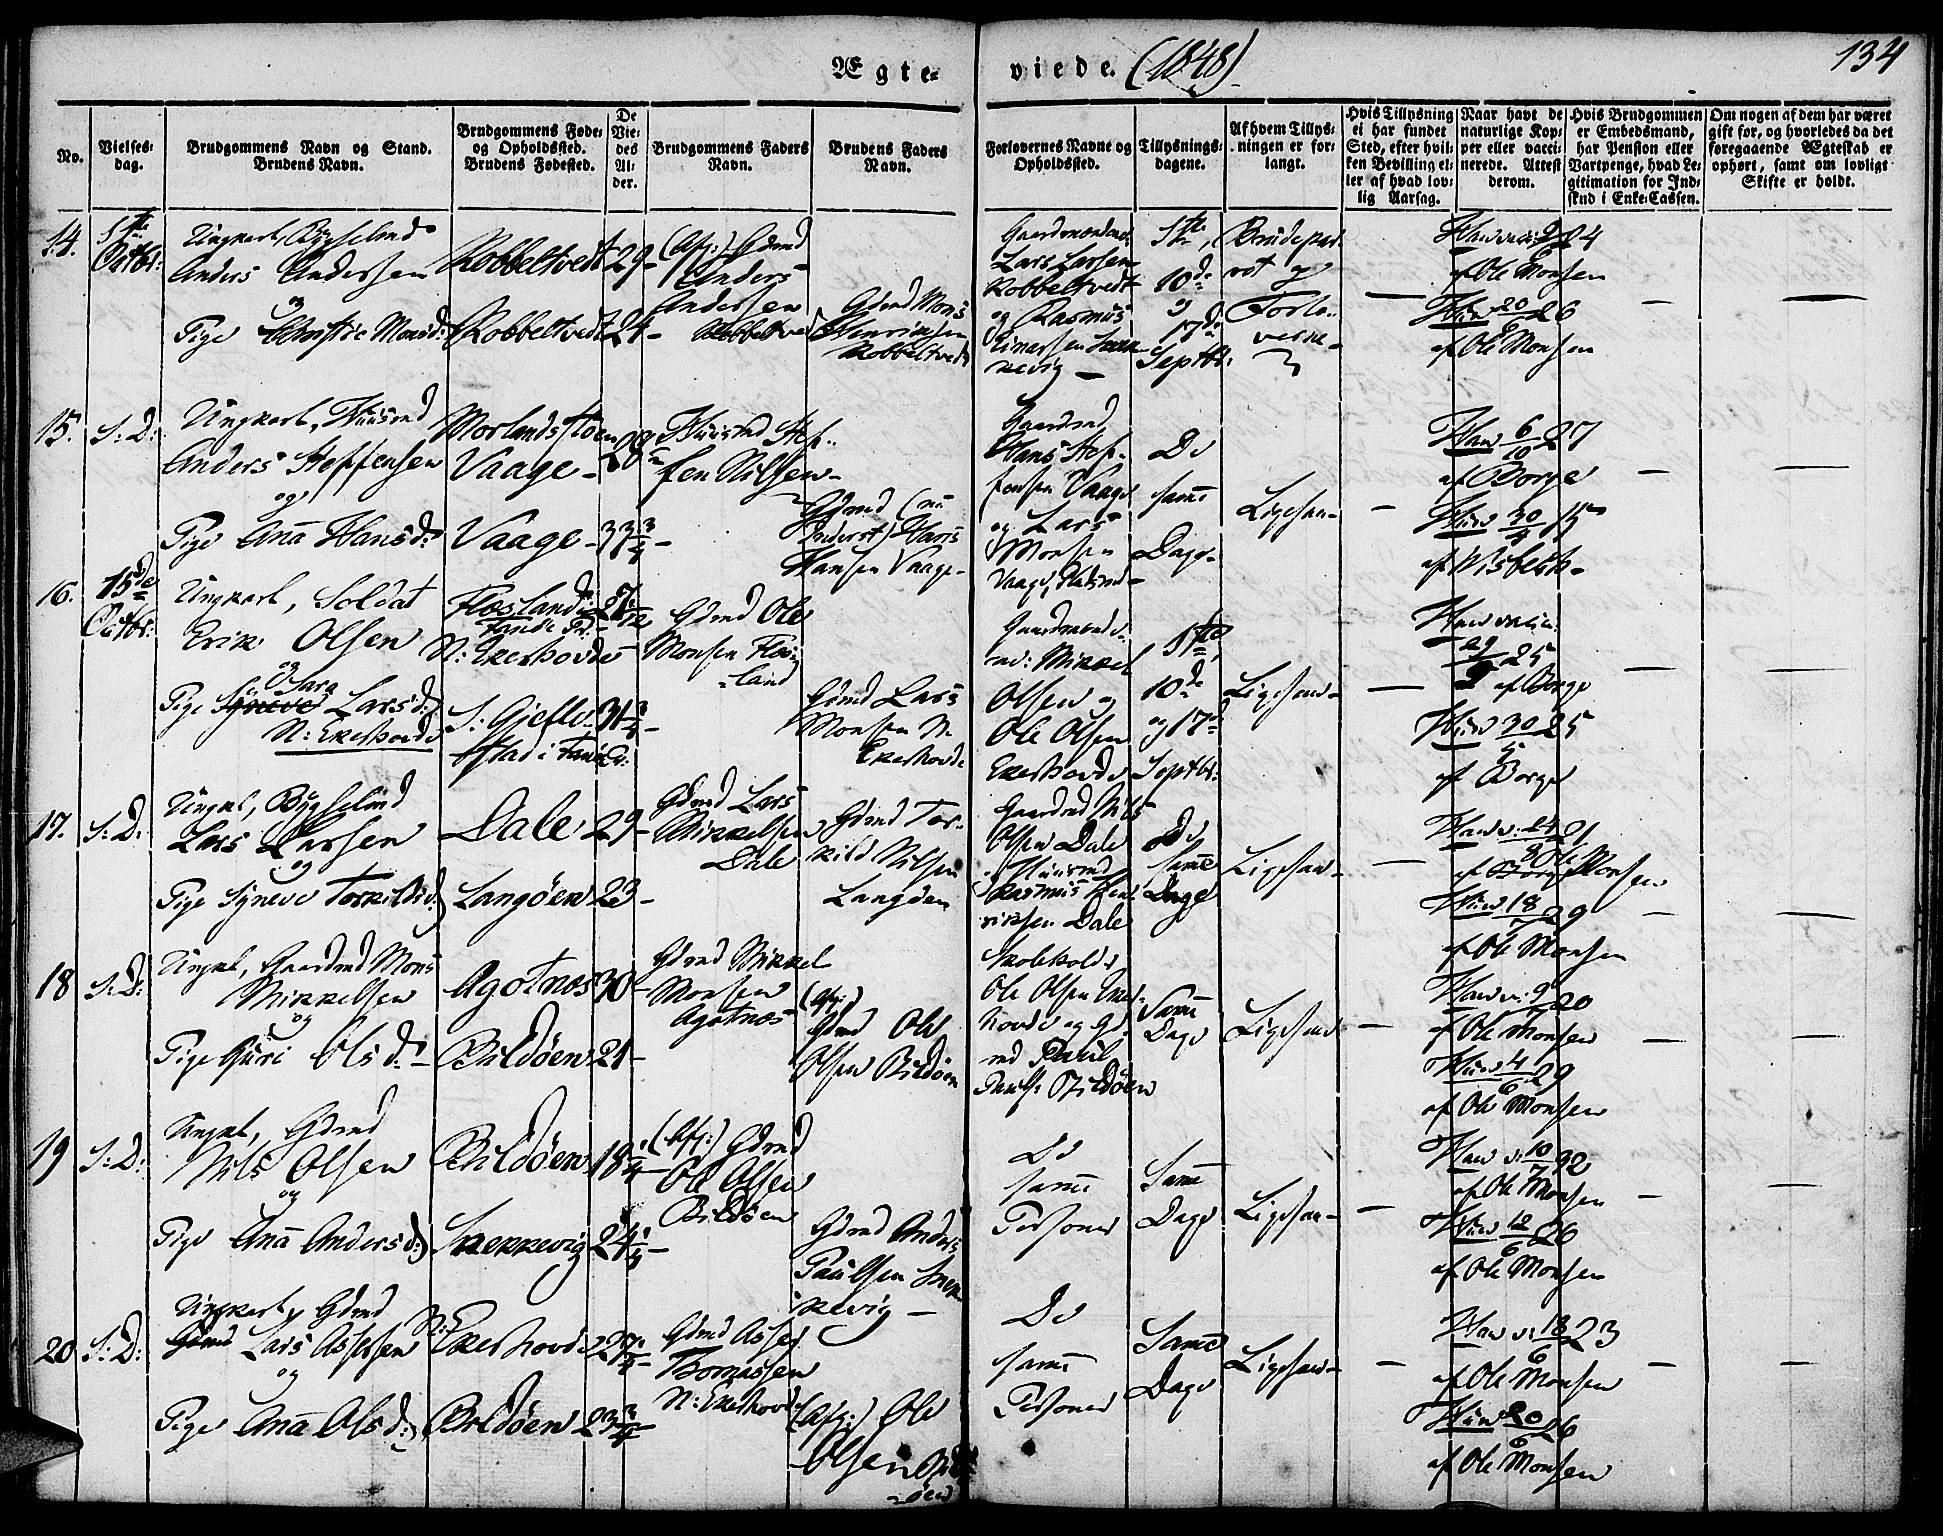 Ægte-
viede. (1848)
134
No.
Vielses-
dag.
Brudgommens Navn og Stand.
Brudens Navn.
Brudgommens Føde-
og Opholdssted.
Brudens Fødested.
De
Vie-
des
Al-
der.
Brudgommens Faders
Navn.
Brudens Faders
Navn.
Forlovernes Navne og
Opholdssted.
Tillysnings-
dagene.
Af hvem Tillys-
ningen er for-
langt.
Hvis Tillysning
ei har fundet
Sted, efter hvil-
ken Bevilling el-
ler af hvad lov-
lig Aarsag.
Naar havt de
naturlige Kop-
per eller vacci-
nerede. Attest
derom.
Hvis Brudgommen
er Embedsmand,
har Pension eller
Vartpenge, hvad Le-
gitimation for Ind-
skud i Enke-Cassen.
Om nogen af dem har været
gift før, og hvorledes da det
foregaaende Ægteskab er
ophørt, samt om lovligt
Skifte er holdt.
14.
1ste
Octbr:
Ungkarl, Bygselmd
Anders Andersen
og
Pige Christie Monsd:
Kobbeltvedt
Kobbeltvedt
29-
21-
(Afg:) Gdmd
Anders
Andersen
Kobbeltvedt
Gdmd Mons
Henriksen
Kobbeltvedt
Gaardmændene
Lars Larsen
Kobbeltvedt
og Rasmus
Einarsen
10de
og
17de
Septbr:
Brudepar-
rot og
Forlo-
verne
24
af Ole Monsen
Hun 20/6 26
af Ole Monsen
15.
S: D:
Ungkarl, Huusmd
Anders Steffensen
og
Pige Ana Hansd:
Morlandstøen
Vaage -
Vaage -
33 3/4 -
Huusmd Stef-
fen Nilsen -
Gdmd (nu
Inderst) Hans
Hansen Vaage -
Gaardmd
Hans Stef-
fensen Vaage
og Lars
Monsen
Vaage,
De
samme
Dage -
Ligesaa -
Han 6/10 27
af Borge
Hun 30/4 15
af Nisbeth -
16.
15de
Octbr:
Ungkarl, Soldat
Erik Olsen
og Sara
Pige Syneve Larsd:
N: Ekerhovde
Flesland i
Fane Pr:
N: Ekerhovde
31 3/4 -
Gdmd Ole
Monsen Fles-
land
Gdmd Lars
Monsen N:
Ekerhovde
Mikkel
Olsen og
Ole Olsen
Ekerhovde
10de
og 17de
Septbr:
Ligesaa -
25
af Borge
Hun 30/5 25
af Borge
17.
S: D:
Ungkl, Bygselmd
Lars Larsen
og
Pige Syneve Torkildsd:
Dale
Langøen
29 -
23 -
Gdmd Lars
Mikkelsen
Dale
Gdmd Tor-
kild Nilsen
Langøen
Gaardmd Nils
Olsen Dale
og Huusmd
Rasmus Hen-
riksen Dale
De
samme
Dage
Ligesaa -
21
af Borge Ole Monsen
Hun 18/7 29
af Ole Monsen
18
S: D:
Ungkl, Gaardmd Mons
Mikkelsen
og
Pige Guri Olsd: -
Agotnæs
Bildøen
30 -
21 -
Gdmd Mikkel
Monsen
Agotnæs
(Afg:)
Gdmd Ole
Olsen Bildøen
Skoleholder
Ole Olsen Eker-
hovde og Gd-
md Paul
Bildøen
Samme
Dage
Ligesaa
20
af Ole Monsen
Hun 4/6 29
af Ole Monsen
19
S: D:
Ungkl, Gdmd
Nils Olsen
og
Pige Ana Andersd:
Bildøen
Snekkevig
24 1/4 -
(Afg:) Gdmd
Ole Olsen
Bildøen
Gdmd Anders
Paulsen Snek-
kevig -
De
samme
Personer
Samme
Dage
Ligesaa -
Han v: 10/7 32
af Ole Monsen
Hun 12/6 26
af Ole Monsen
20
S: D:
Ungkarl, Gdmd
Gdmd Lars Assersen
og
Pige Ana Olsd:
N: Ekerhovde
Bildøen
23 3/4 -
Gdmd Asser
Thomassen
N: Ekerhovde
(Afg:) Ole
Olsen Bild-
øen
De
samme
Personer
Samme
Dage
Ligesaa -
Han v: 18/6 23
af Ole Monsen
Hun 20/6 26
af Ole Monsen